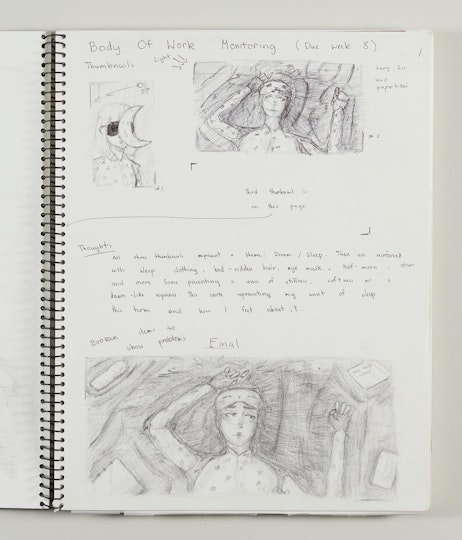 Body Of Work Monitoring (Due week 8)
Thumbnails
Light
Sorry for
bad
proportions
#1
#2
Third thumbnail is
on this page
Thoughts
All three thumbnails represent a theme: Dream / Sleep. These are reinforced
with sleep clothing, bed-ridden hair, eye mask, half-moon, stars
and more. Some presenting a sense of stillness, softness or a
dream-like essence. This work representing my want of sleep
this term and how I feel about it.
Broken items to
show problems
Final